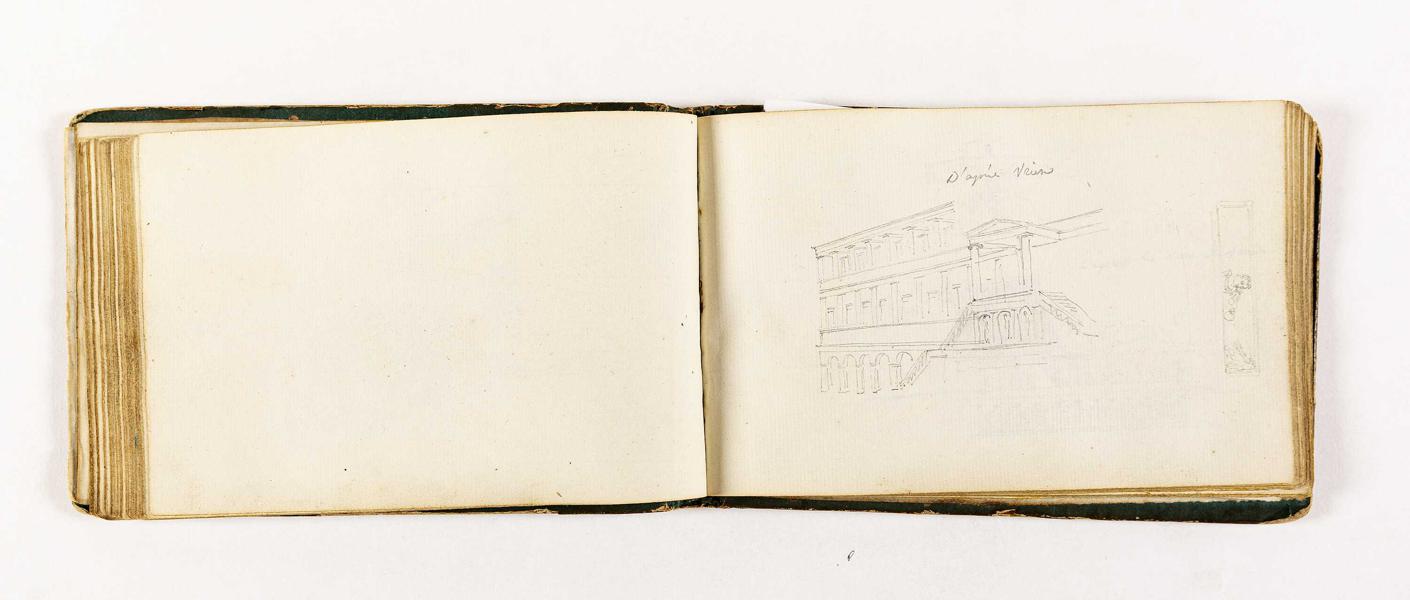 D'après Vries